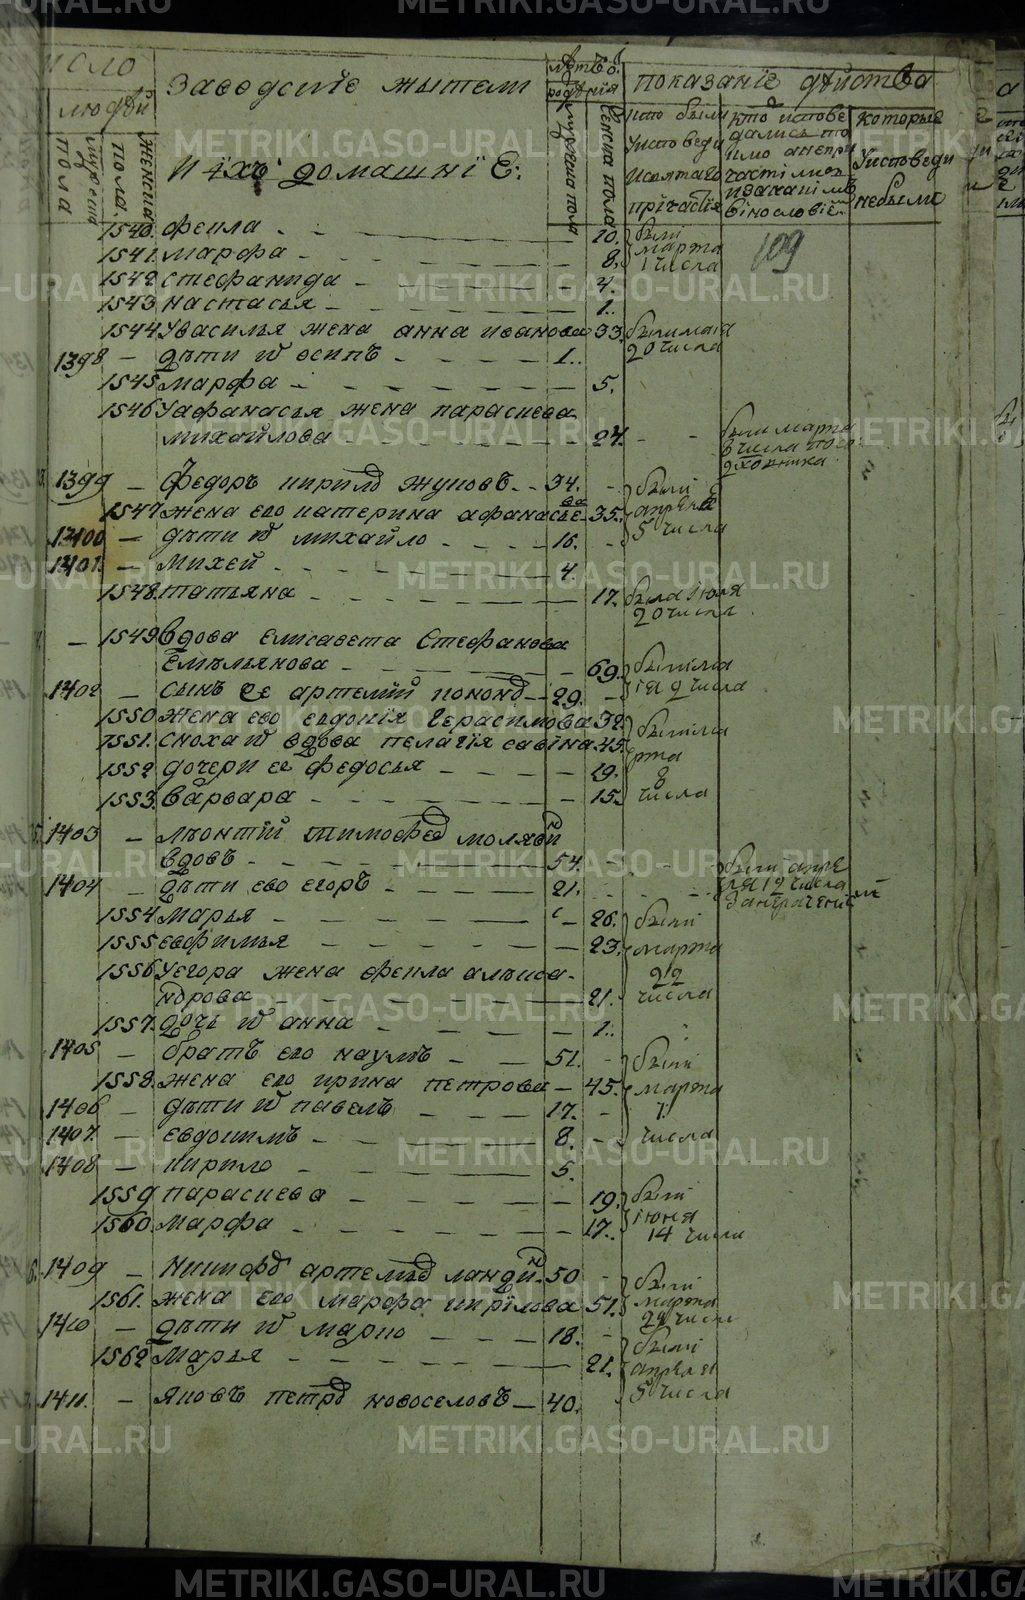 число людей
мужеска пола
женска пола.
Заводскiе жытели
И ихъ домашнiе.
лѣтъ от рождения
мужеска пола
женска пола
показанiе действа
кто были у исповеди и святаго причастiя
кто исповедались то
которые у исповеди небыли
109
1540. фекла 10. были
1541. марфа 8. марта
1542 стефанида 4. 1 числа
1543 настасья 1.
1544 У василья жена анна иванова 33. были мая
1398 – дѣти их осипъ 1. 20 числа
1545 марфа 5.
1546 У афанасья жена параскева
михайлова 24. были марта
6 числа
1399 – Федоръ кирилов жуковъ 34. были
1547 жена его катерина афанасьева 35. апреля
1400 – дѣти их михайло 16. 5 числа
1401. – михей 4.
1548. татьяна 17. была июля
20 числа
– 1549 вдова елисавета стефанова
емельянова 69. были ма
1402 – сынъ ее артемий конон 29. 2 числа
1550 жена его евдокiя герасимова 32. были ма
1551. сноха их вдова пелагiя савина 45. рта
1552 дочери ее федосья 19. 8
1553. варвара 15. числа
1403 – леонтий тимофеев молявин
вдовъ 54. были апре
1404 – дѣти ево егоръ 21. ля 12 числа
1554 марья 26. были
1555 евфимья 23. марта
1556 У егора жена фекла алекса- 22
ндрова 21. числа
1557. дочь их анна 1.
1405 – братъ его наумъ 51. были
1558. жена его ирина петрова 45. марта
1406 – дѣти их павелъ 17. 7.
1407. – евдокимъ 8. числа
1408 – кирило 5.
1559 параскева 19. были
1560. марфа 17. июня
14 числа
1409 – Никифор артемьев ландин. 50 были
1561. жена его марфа кирiлова 51. марта
1410 – дѣти их марко 18. 24 числа
1562 марья 21. были апреля
1411. – Яковъ петров новоселовъ 40. 5 числа
METRIKI.GASO-URAL.RU